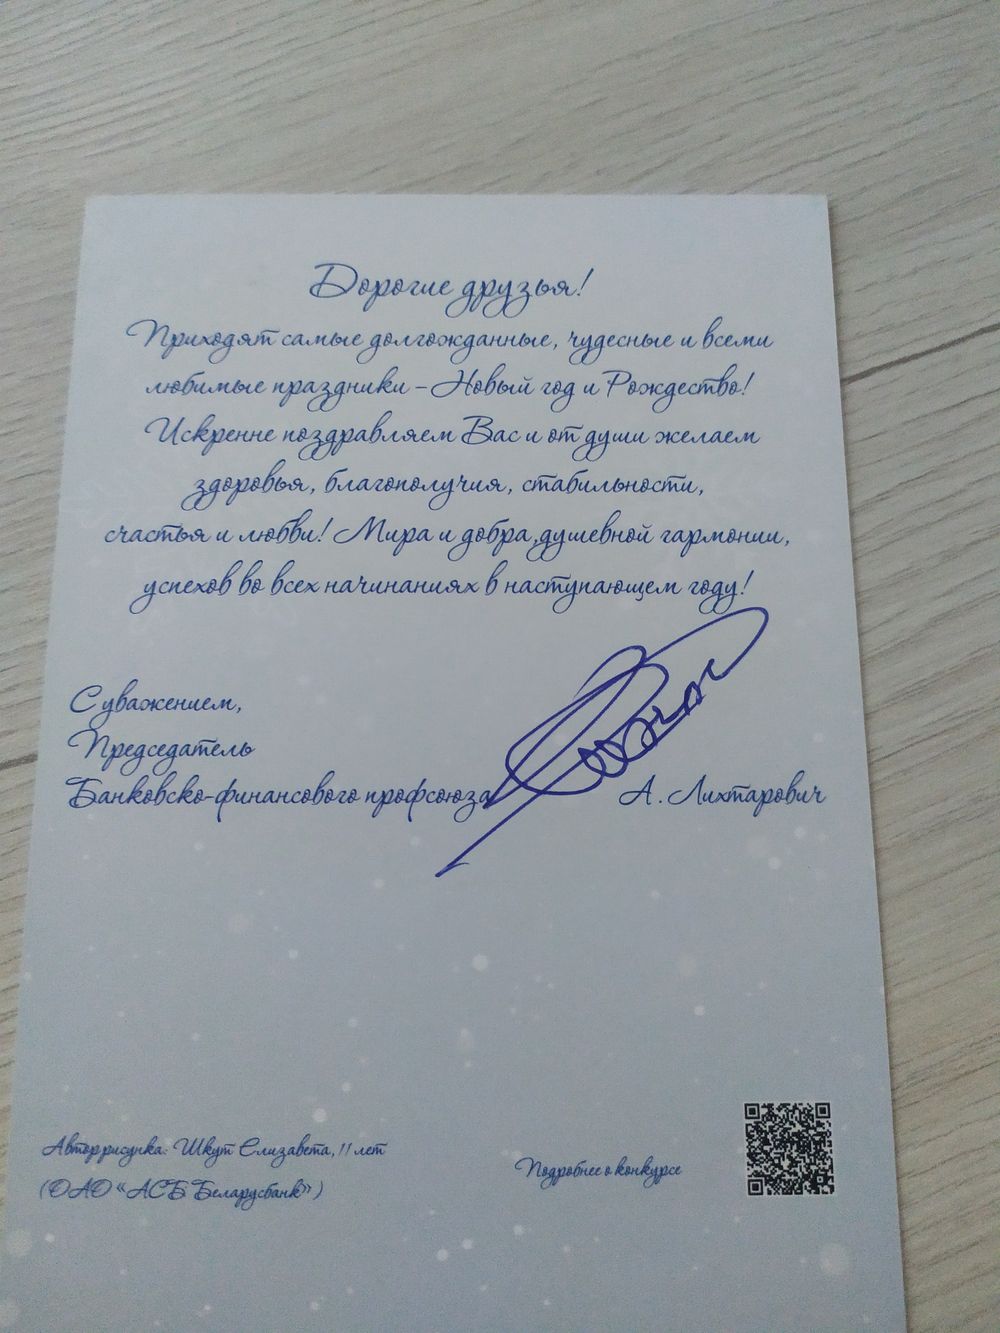 Дорогие друзья!
Приходят самые долгожданные, чудесные и всеми
любимые праздники – Новый год и Рождество!
Искренне поздравляем Вас и от души желаем
здоровья, благополучия, стабильности,
счастья и любви! Мира и добра,душевной гармонии,
успехов во всех начинаниях в наступающем году!
С уважением,
Председатель
Банковско-финансового профсоюза А. Лихтарович
Автор рисунка: Шкут Елизавета, 11 лет
(ОАО «АСБ Беларусбанк»)
Подробнее о конкурсе